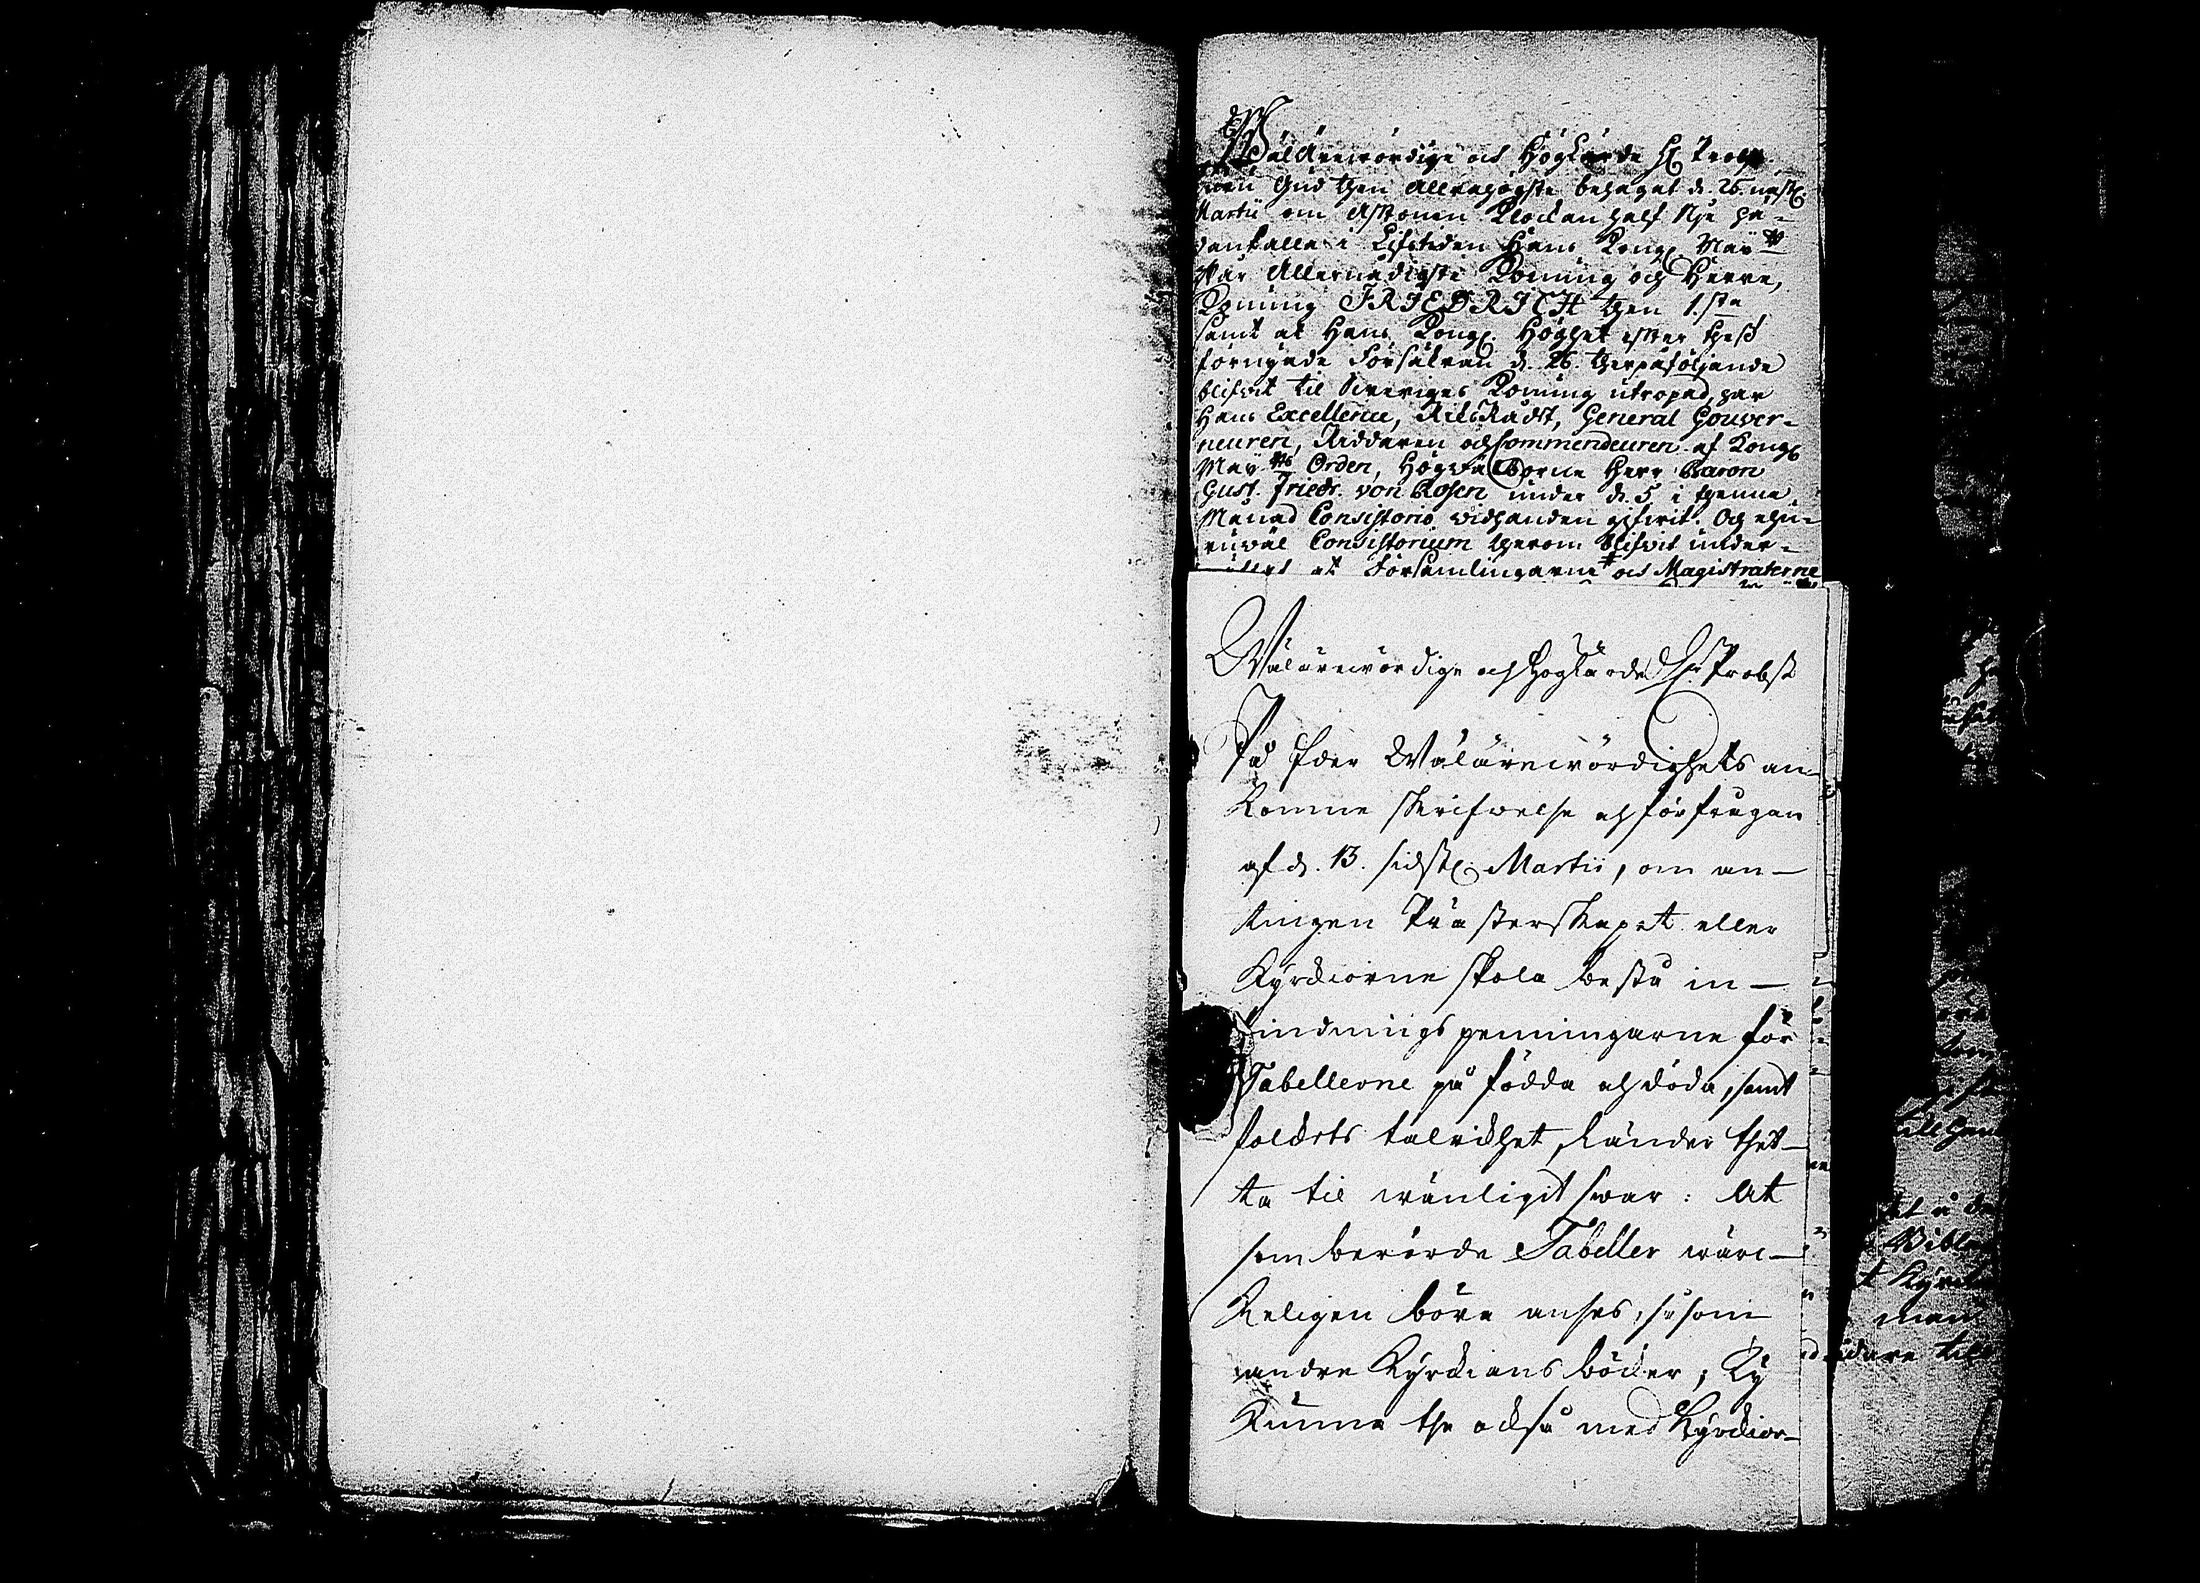 WälÄrewördige och Höglärde H. Probst.
Gud then Allrahögste behagat d. 25 näst.
Martii om Aftonen Klockan half Nje hä-
dankalla i Lifstiden Hans Kongl. May:tt
Wår Allernådigste Konung och Herre,
Konung FRIEDRICH then 1.sta
samt at Hans Kongl. Höghet efter thess
förnyade Försäkran d. 26. therpåföljande
blifwit til Sweriges Konung utropad, har
Hans Excellence, RiksRådt, General Gouver-
neuren, Riddaren och Commendeuren af Kongl.
May:tts Orden, Högwälborne Herr Baron
Gust. Friedr. von Rosen under d. 5 i thenne
Månad Consistorio widhanden gifwit. Och ehu-
ruwäl Consistorium therom blifwit under-
at Församlingarne och Magistraterne
Wälärewördige och Höglärde Hr Probst
På Eder Wälärewördighets an-
komne skrifwelse och förfrågan
af d. 13. sidstl. Martii, om an-
tingen Prästerskapet eller
Kyrckiorne skola bestå in-
bindnings penningarne för
Tabellerne på födda och döda, samt
folckets talrickhet, länder thet-
ta til wänligit swar: At
som berörde Tabeller wärc-
keligen böra anses, såsom
andre Kyrckians böcker, ty
kunna the också med Kyrckior-